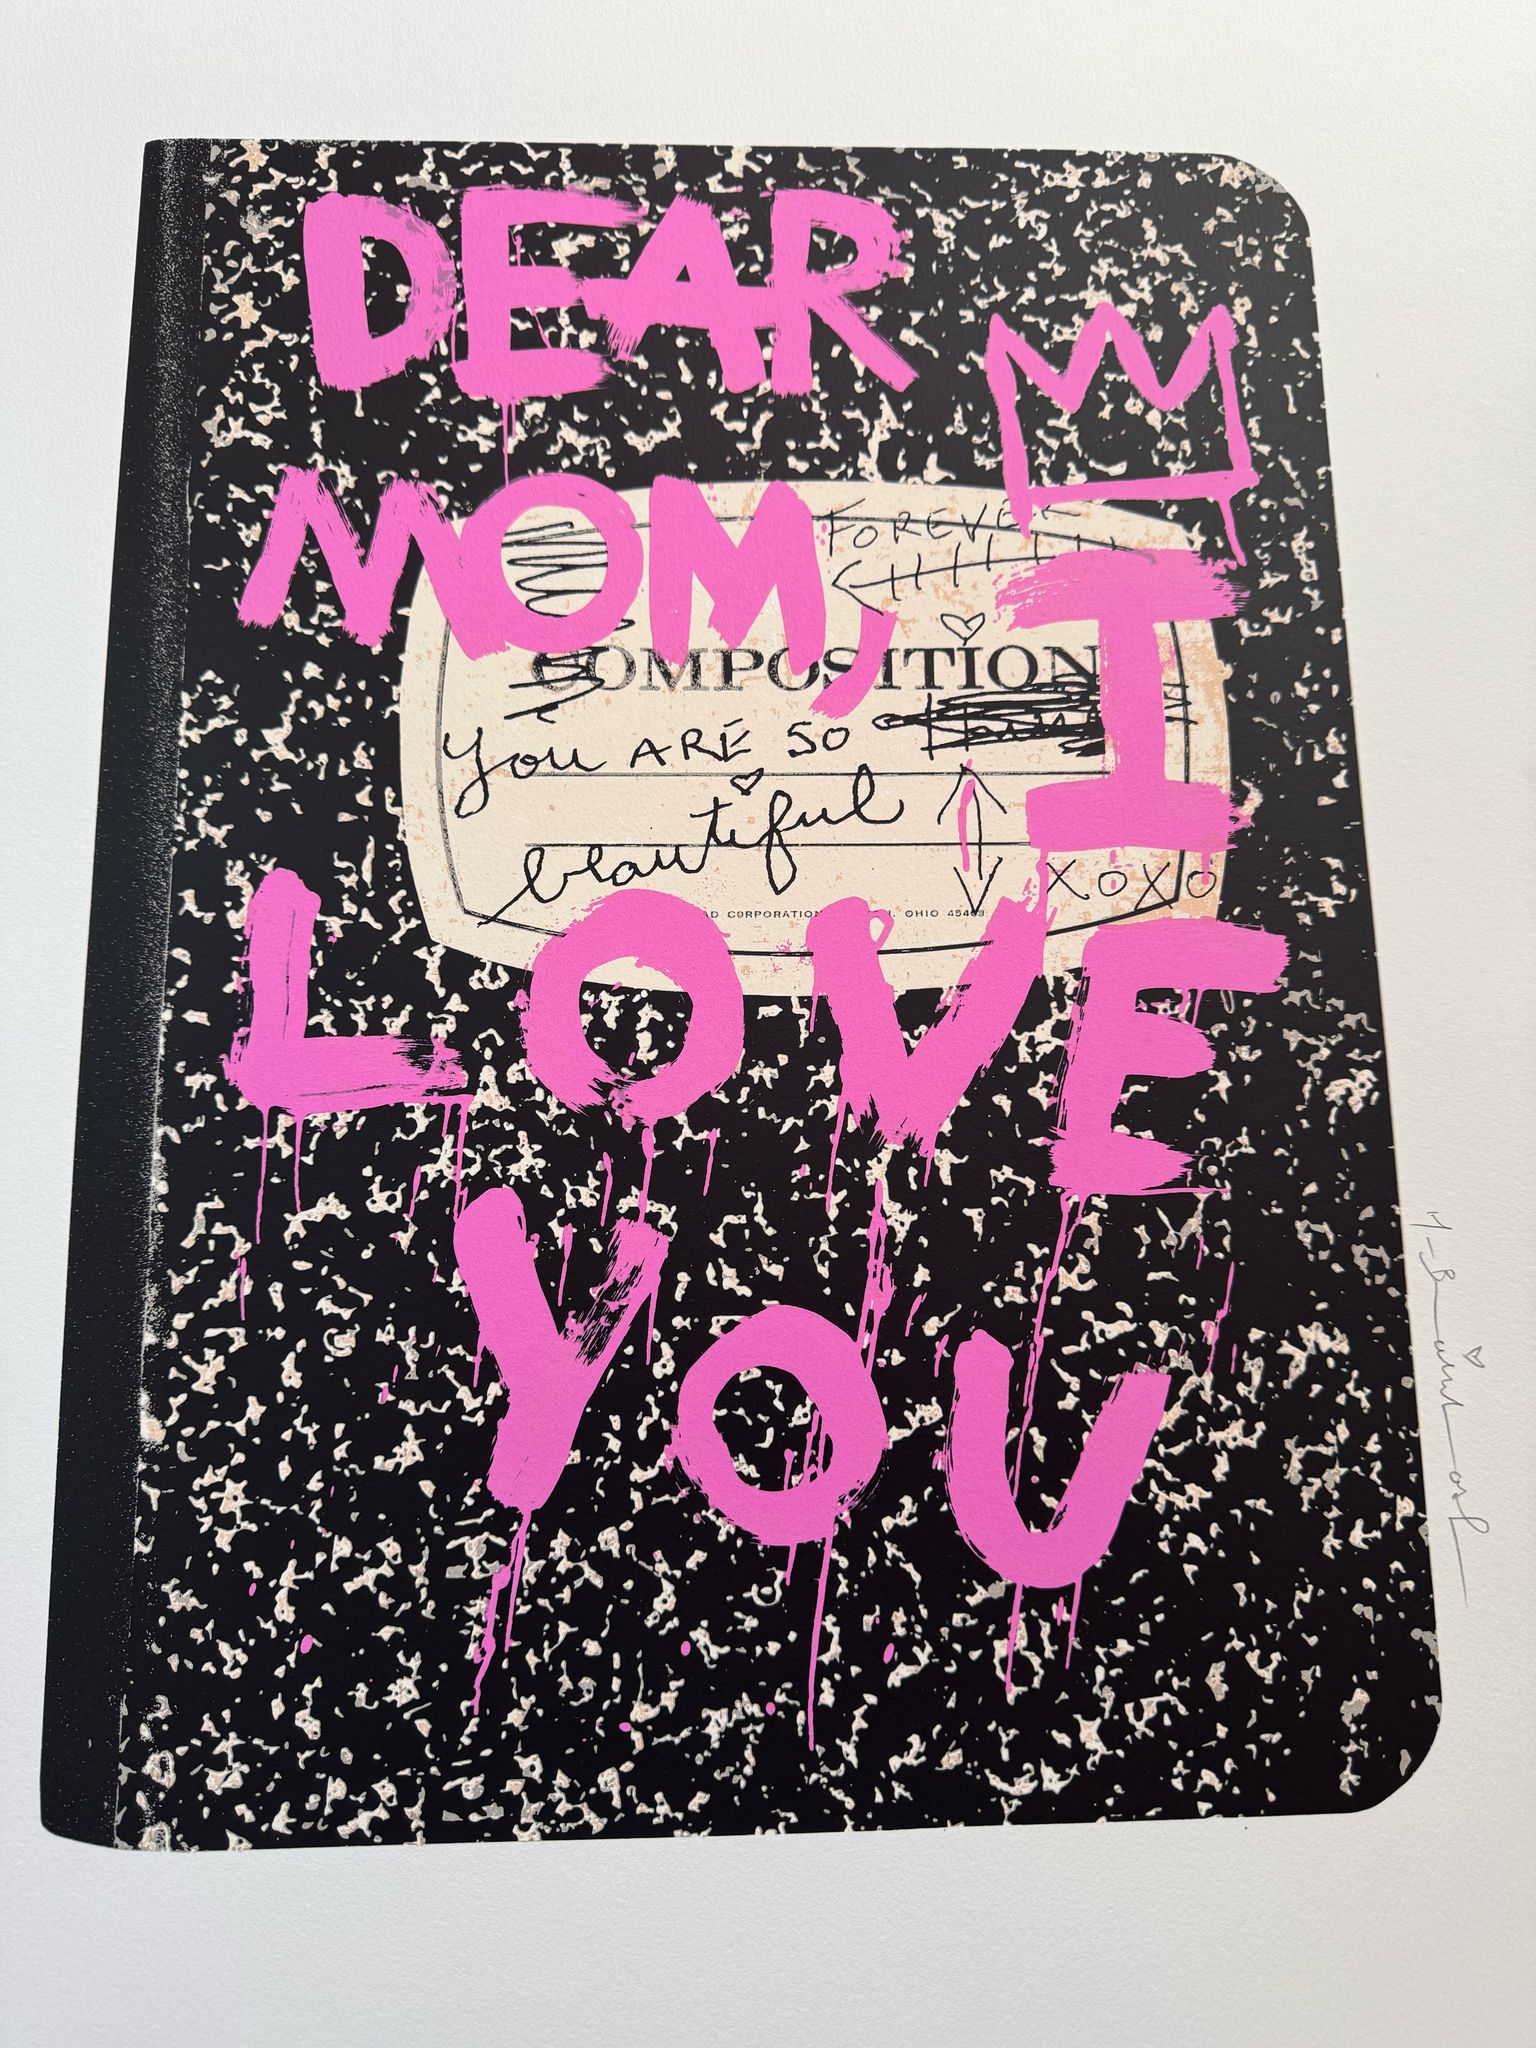 DEAR
MOM, I
LOVE
YOU
FOREVER
COMPOSITION
You ARE SO
beautiful
XOXO
CORPORATION
OHIO 45463